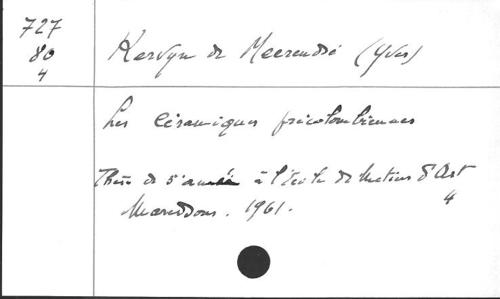 727
80
4
Kervyn de Meerendré (Yves)
Les Céramiques précolombiennes
Thèse de 5e année à l'école de Métiers d'Art
Maredsous. 1961.
4